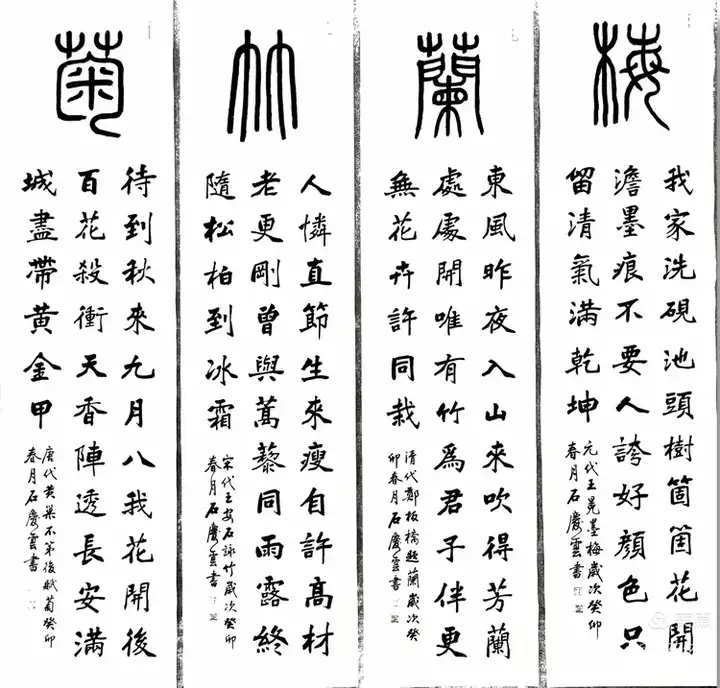 梅
我家洗硯池頭樹箇箇花開
澹墨痕不要人誇好顏色只
留清氣滿乾坤
元代王冕墨梅歲次癸卯
春月石慶雲書
蘭
東風昨夜入山來吹得芳蘭
處處開唯有竹為君子伴更
無花卉許同栽
清代鄭板橋題蘭歲次癸
卯春月石慶雲書
竹
人憐直節生來瘦自許高材
老更剛曾與蒿藜同雨露終
隨松柏到冰霜
宋代王安石詠竹歲次癸卯
春月石慶雲書
菊
待到秋來九月八我花開後
百花殺衝天香陣透長安滿
城盡帶黃金甲
唐代黃巢不第後賦菊癸卯
春月石慶雲書